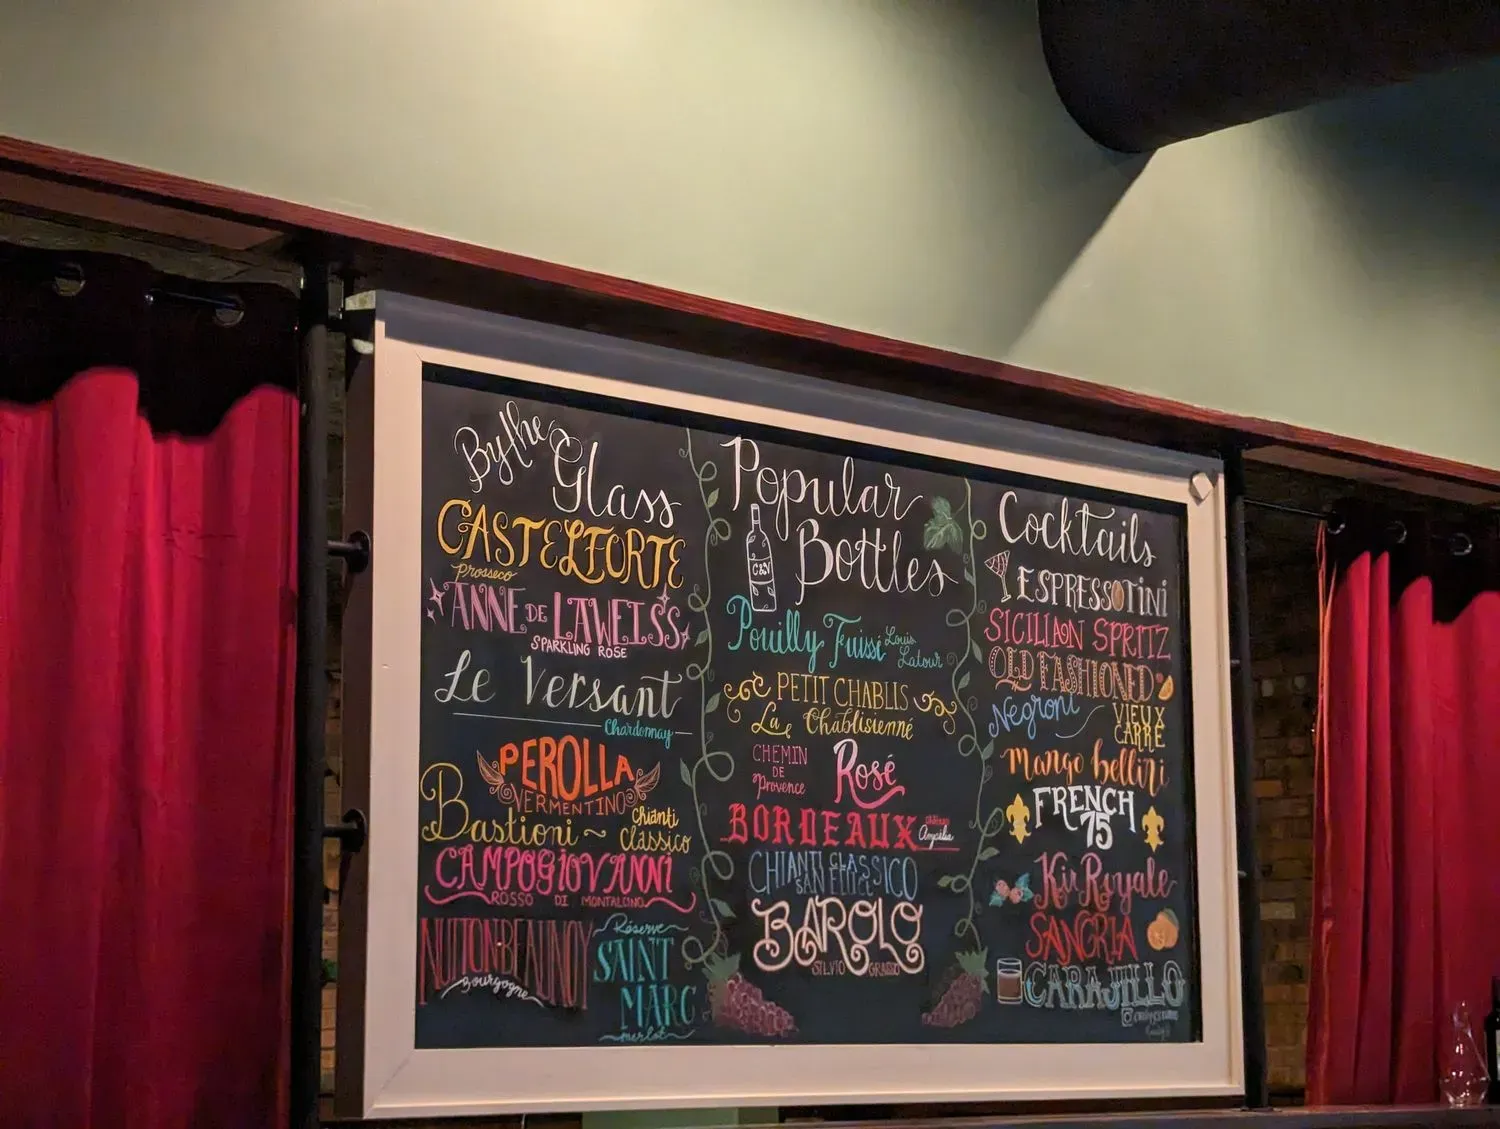 By the
Glass
CASTELFORTE
Prosecco
ANNE DE LAWEISS
SPARKLING ROSE
Le Versant
Chardonnay
PEROLLA
VERMENTINO
Bastioni ~ Chianti
Classico
CAMPOGIOVANNI
ROSSO DI MONTALCINO
NUITON BEAUNOY
Bourgogne
Réserve
SAINT
MARC
merlot
Popular
Bottles
C&V
Pouilly Fuissé Louis
Latour
PETIT CHABLIS
La Chablisienne
CHEMIN
DE
Provence
Rosé
BORDEAUX Château
Ampélia
CHIANTI CLASSICO
SAN FELICE
BAROLO
SILVIO GRASSO
Cocktails
ESPRESSOTINI
SICILIAN SPRITZ
OLD FASHIONED
Negroni
VIEUX
CARRE
Mango bellini
FRENCH
75
Kir Royale
SANGRIA
CARAJILLO